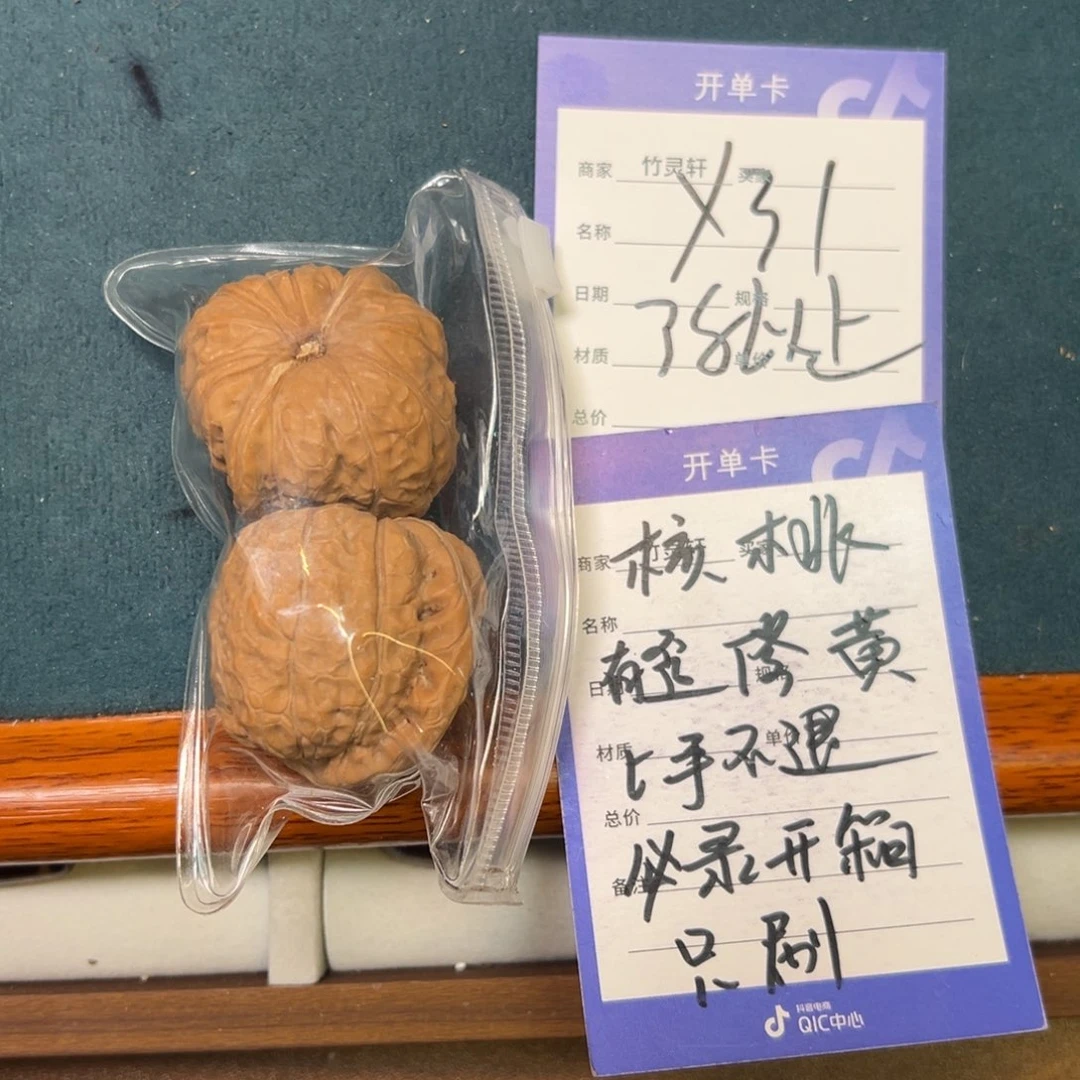 开单卡
商家 竹灵轩 买家
Y31
名称
日期 规格
材质 单价
总价
开单卡
商家 竹灵轩 买家
核桃
名称
有 黄
日期 规格
上手不退
材质 单价
总价
必录开箱
备注
只刷
抖音电商
QIC中心